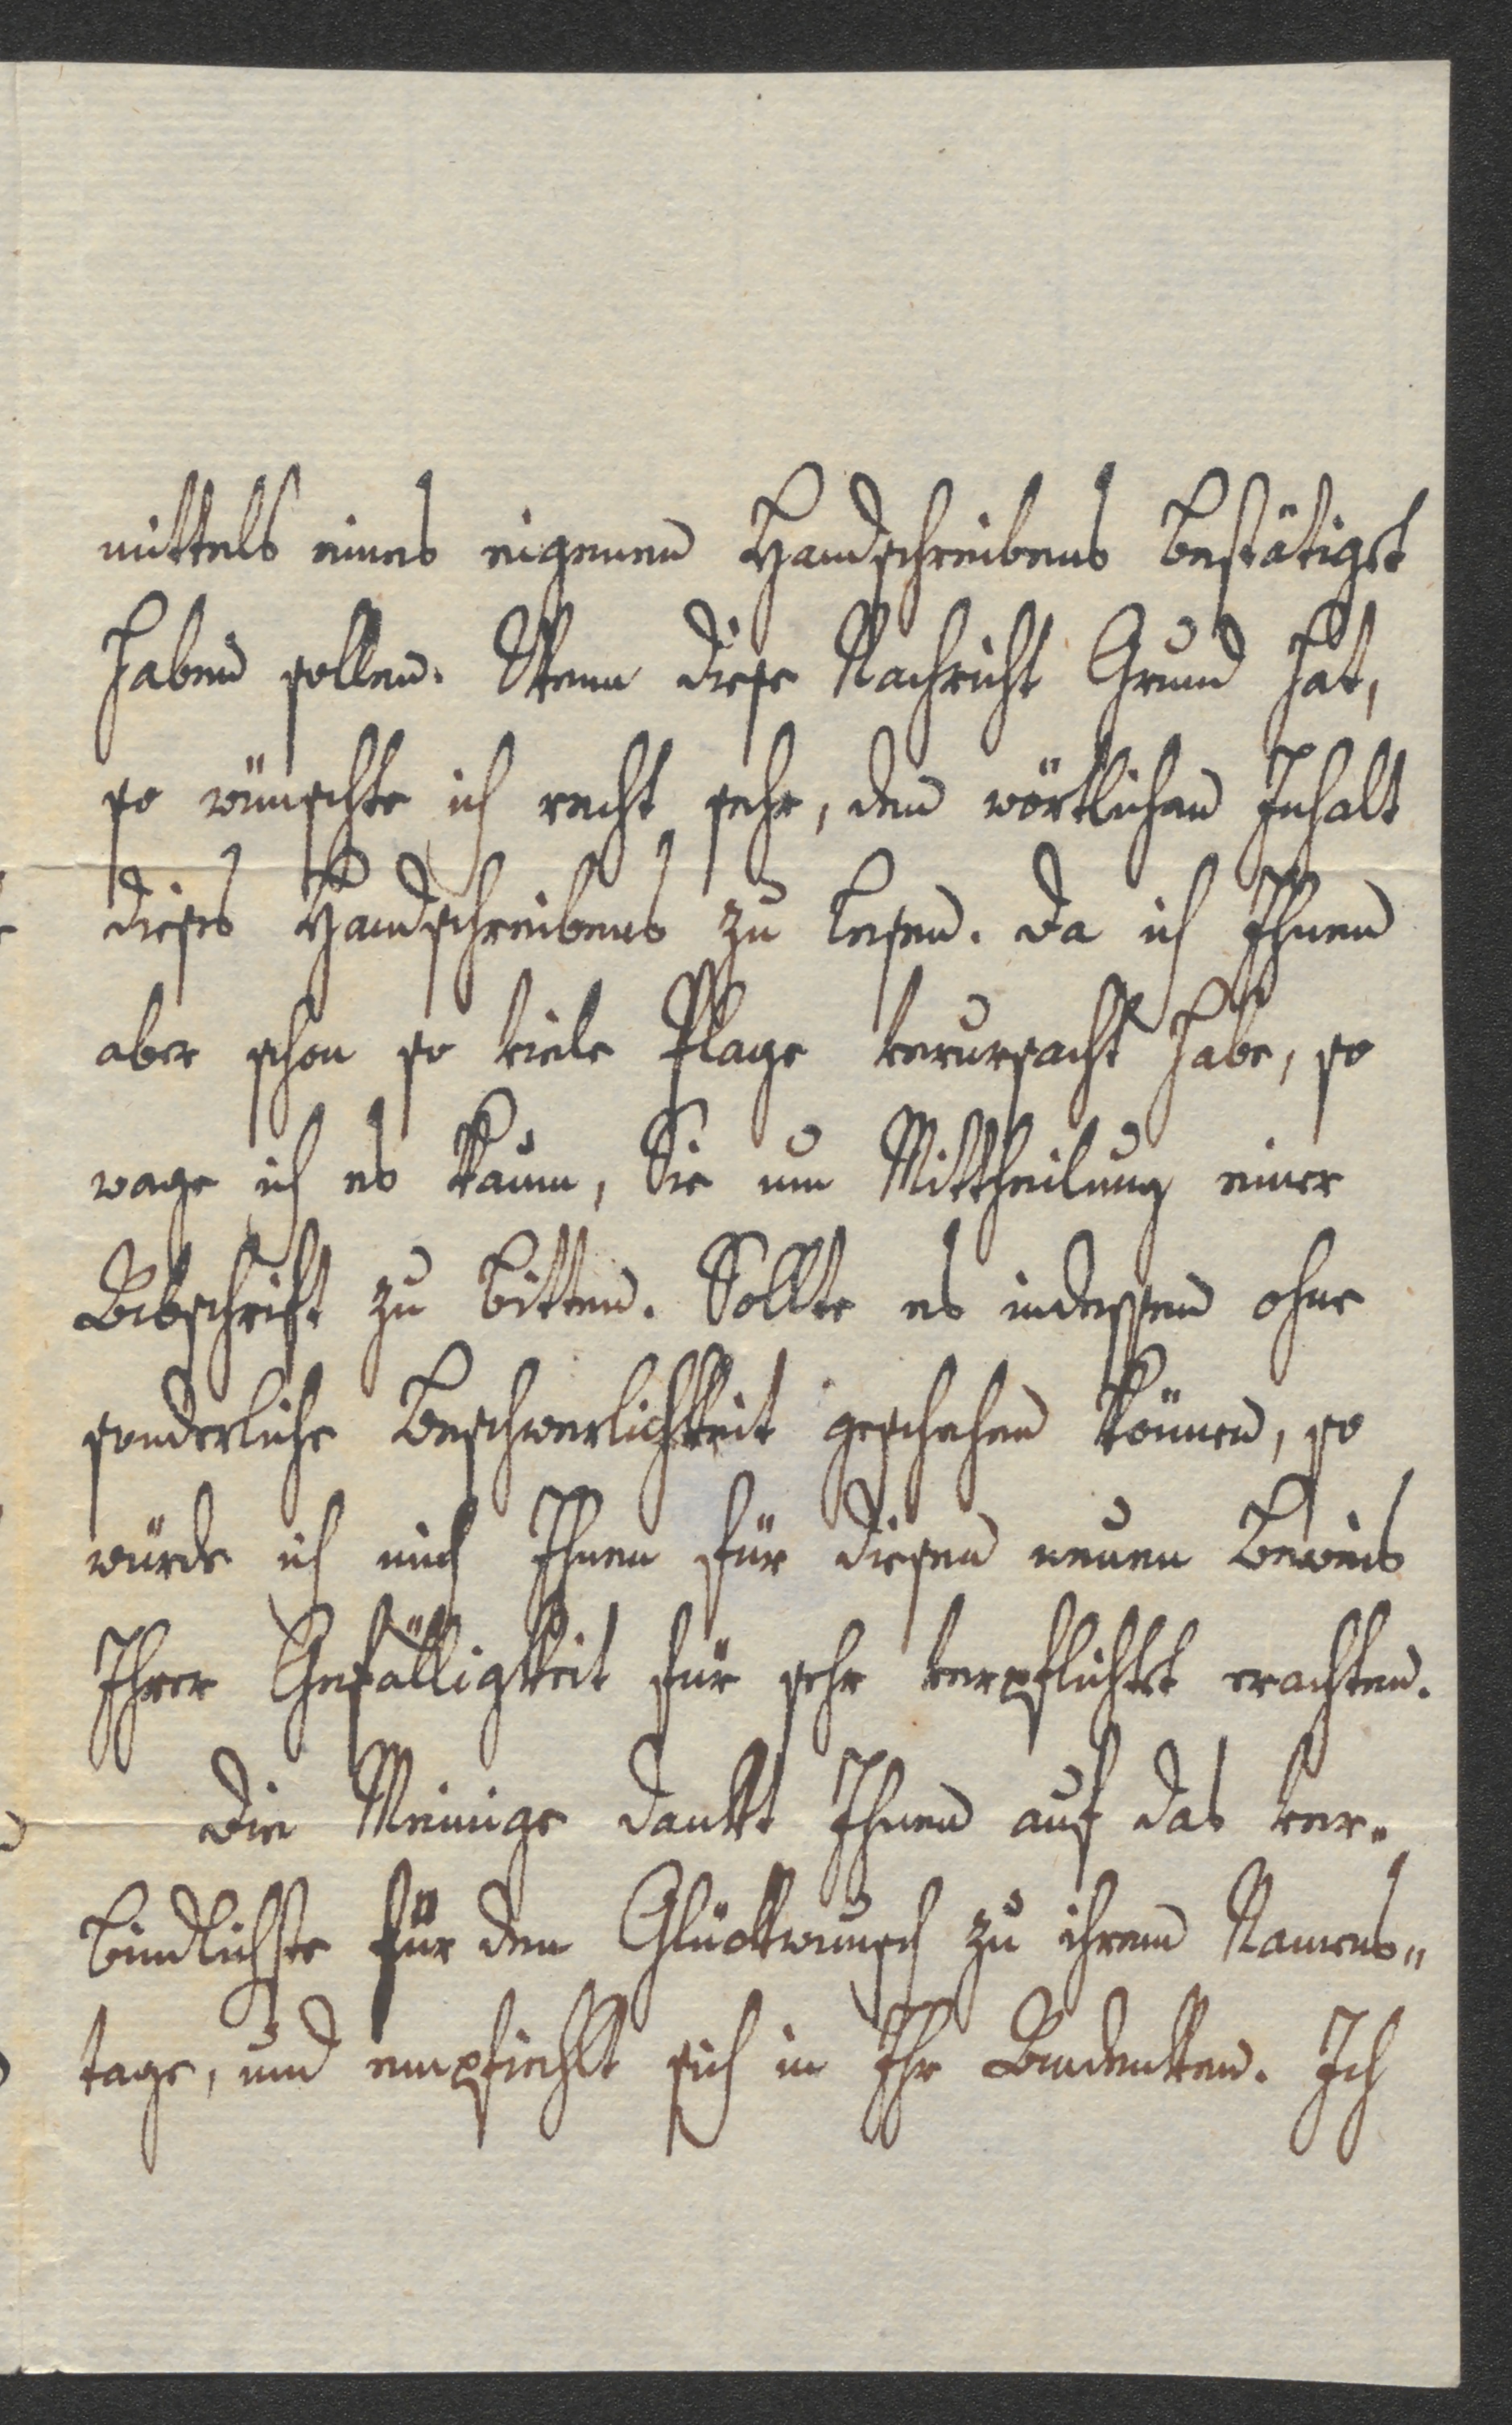 mittels eines eigenen Handschreibens bestätiget
haben sollen. Wenn diese Nachricht Grund hat,
so wünschte ich recht sehr, den wörtlichen Inhalt
dieses Handschreibens zu lesen. Da ich Ihnen
aber schon so viele Plage verursacht habe, so
wage ich es kaum, Sie um Mittheilung einer
Abschrift zu bitten. Sollte es indessen ohne
sonderliche Beschwerlichkeit geschehen können, so
würde ich mich Ihnen für diesen neuen Beweis
Ihrer Gefälligkeit für sehr verpflichtet erachten.
Die Meinige dankt Ihnen auf das ver-
bindlichste für den Glückwunsch zu ihrem Namens-
tage, und empfiehlt sich in Ihr Andenken. Ich